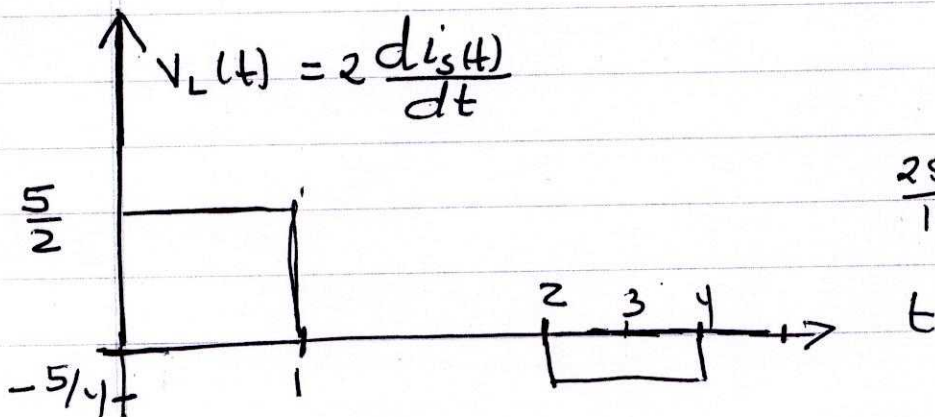 V_L(t) = 2 di_s(t)/dt
5/2
2 3 4
t
-5/4
1